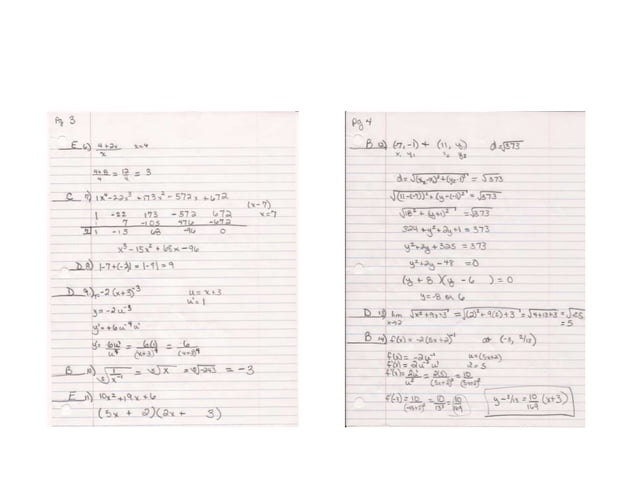 Pg 3
E 6) (4+2x)/x x=4
(4+8)/4 = 12/4 = 3
C 7) 1x⁴-22x³+173x²-572x+672
(x-7)
1 -22 173 -572 672 x=7
7 -105 476 -672
1 -15 68 -96 0
x³-15x²+68x-96
D 8) |-7+(-2)| = |-9| = 9
D 9) y=-2(x+3)⁻³ u=x+3
u'=1
y=-2u⁻³
y'=+6u⁻⁴u'
y'=6u'/u⁴ = 6(1)/(x+3)⁴ = 6/(x+3)⁴
B 10)
= -3
E 11) 10x²+19x+6
(5x + 2)(2x + 3)
Pg 4
B 12) (-7,-1) + (11, y) d=√373
x₁ y₁ x₂ y₂
d=√(x₂-x₁)²+(y₂-y₁)² = √373
√(11-(-7))²+(y-(-1))² = √373
√18²+(y+1)² = √373
324+y²+2y+1 = 373
y²+2y+325 = 373
y²+2y-48 = 0
(y + 8)(y - 6) = 0
y=-8 or 6
D 13) lim x→2 √x²+9x+3 = √(2)²+9(2)+3 = √4+18+3 = √25
= 5
B 14) f(x) = -2(5x+2)⁻¹ at (-3, 2/13)
f(x) = -2u⁻¹ u=(5x+2)
f'(x) = 2u⁻²u'
f'(x) = 2u'/u² = 2(5)/(5x+2)² = 10/(5x+2)²
f'(-3) = 10/(-15+2)² = 10/13² = 10/169
y-2/13 = 10/169 (x+3)